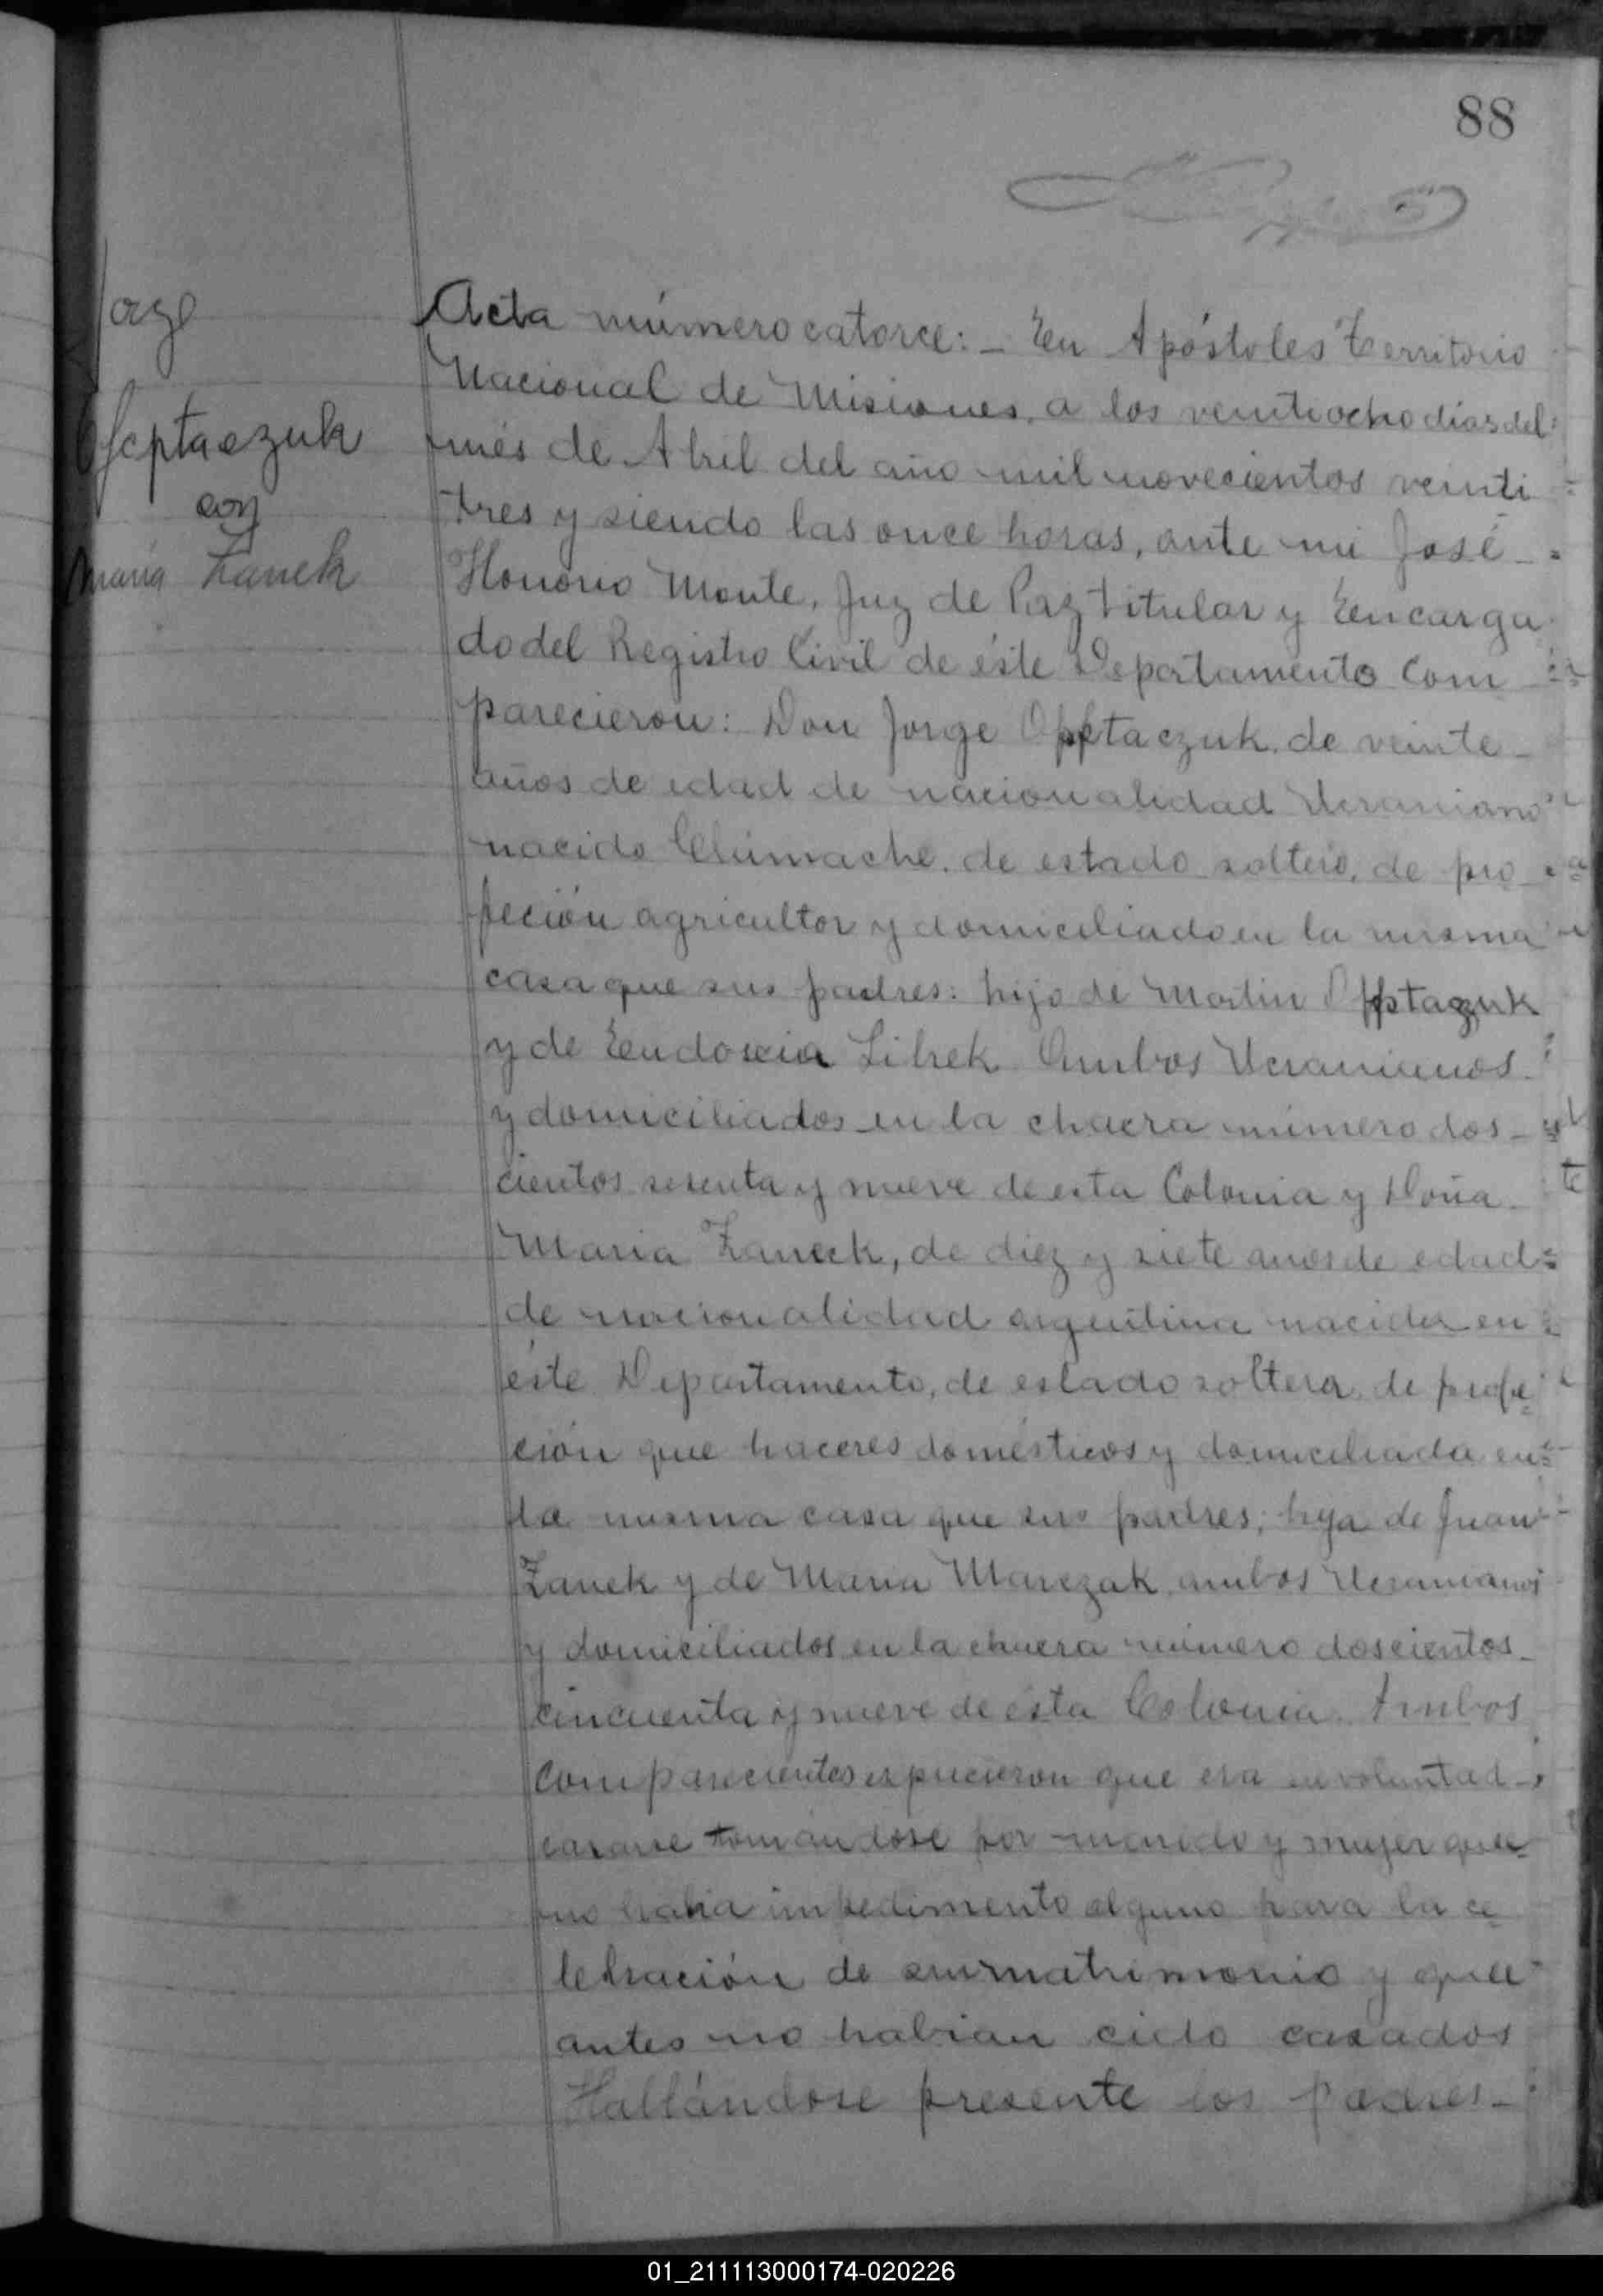 88
Jorge
Ofeptaczuk
con
María Zanek
Acta número catorce: _ En Apóstoles Territorio
Nacional de Misiones, a los veintiocho dias del
més de Abril del año mil novecientos veinti
tres y siendo las once horas, ante mi José _
Honorio Monte, Juz de Paz titular y Encarga
do del Registro Civil de éste Departamento Com
parecieron: Don Jorge taczuk, de veinte _
años de edad de nacionalidad Ucraniano
nacido Chimache, de estado soltero, de pro _
feción agricultor y domiciliado en la misma
casa que sus padres: hijo de Martin
y de Eudoscia Librek Ambos Ucranianos.
y domiciliados en la chacra número dos _
cientos sesenta y nueve de esta Colonia y Doña
Maria Zaneck, de diez y siete años de edad
de nacionalidad argentina nacida en
éste Departamento, de estado soltera, de profe
ción que haceres domésticos y domiciliada en
la misma casa que sus padres; hija de Juan
Zanek y de Maria Marczak ambos Ucranianos
y domiciliados en la chacra número doscientos _
cincuenta y nueve de ésta Colonia. Ambos
Comparecientes expucieron que era su voluntad _
casarse tomándose por marido y mujer que
no habia impedimento alguno para la ce
lebración de su matrimonio y que
antes no habian cido casados
Hallándose presente los padres _
01_211113000174-020226